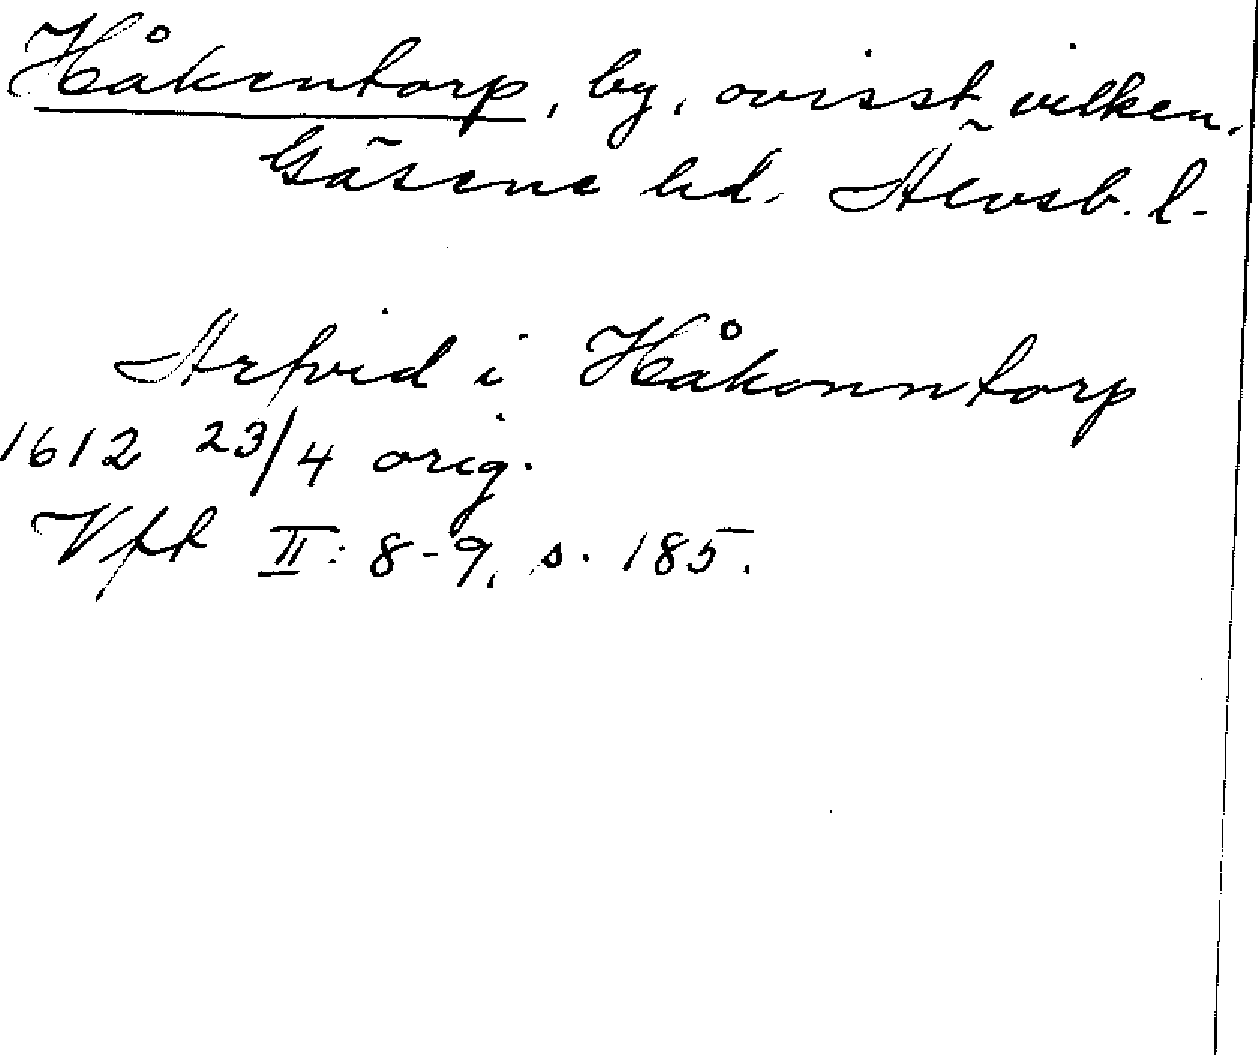 Håkentorp, by, ovisst vilken.
Gäsene hd. Älvsb. l.
Arfvid i Håkonntorp
1612 23/4 orig.
Vft II: 8-9, s. 185.